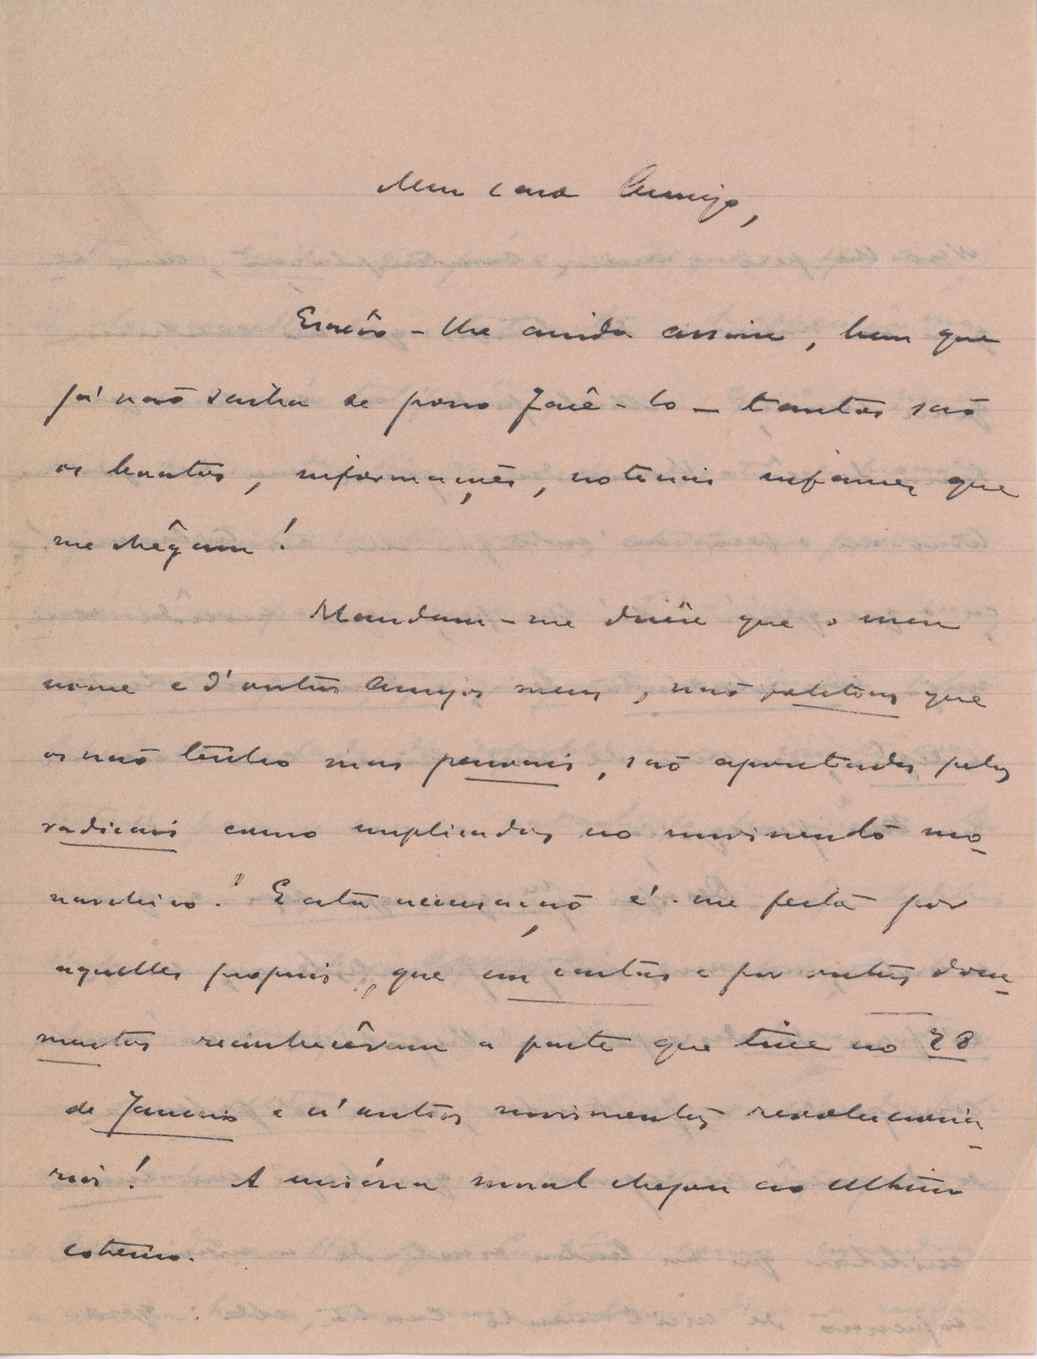 Meu caro Amigo,
Escrêvo-lhe ainda assim, bem que
já não saiba se posso fazê-lo — tantos são
os boatos, informações, noticias infames que
me chêgam!
Mandam-me dizêr que o meu
nome e d'outros Amigos meus, não politicos que
os não tenho mas pessoais, são apontados pelos
radicais como implicados no movimento mo-
narchico. E esta accusação é-me feita por
aquelles proprios, que em cartas e por outros docu-
mentos reconhecêram a parte que tive no 28
de Janeiro e n'outros movimentos revoluciona-
rios! A miséria moral chegou ao ultimo
extremo.